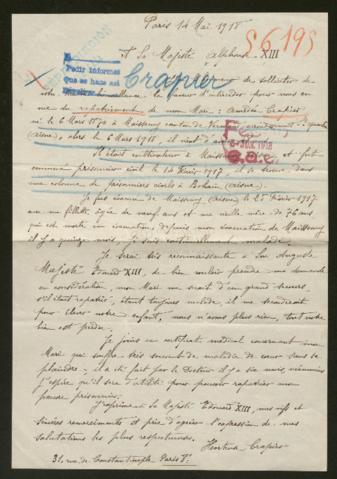 Paris 14 Mai 1918
56195
A Sa Majesté Alphonse XIII
Pedir informes
Que se hace así
Crapier
de solliciter de
votre bienveillance, la faveur d'intercéder pour nous en
vue du rapatriement de mon Mari, Amédée Crapier
né le 6 Mars 1870 à Maissemy canton de
(Aisne), alors le 6 Mars 1918, il vient d'avoir
Il était cultivateur à Maissemy et fut
emmené prisonnier civil le 14 Février 1917, et se trouve dans
une colonne de prisonniers civils à Bohain (Aisne).
Je fus évacuée de Maissemy (Aisne) le 25 Février 1917
avec ma fillette, âgée de neuf ans et ma vieille mère de 76 ans
qui est morte en
il y a quinze mois. Je suis actuellement malade.
Je serai très reconnaissante à Son Auguste
Majesté Edouard XIII, de bien vouloir prendre ma demande
en considération, mon Mari me serait d'un grand secours
s'il était rapatrié, étant toujours malade, il me
pour élever notre enfant, nous n'avons plus rien, tout notre
bien est perdu.
Je joins un certificat médical concernant mon
Mari qui souffre très souvent de maladie de cœur sans se
plaindre, il a été fait par le Docteur il y a six mois, néanmoins
j'espère qu'il sera d'utilité pour pouvoir rapatrier mon
pauvre prisonnier.
J'exprime à Sa Majesté Edouard XIII, mes vifs et
sincères remerciements et prie d'agréer l'expression de mes
salutations les plus respectueuses.
Crapier
31, rue de Constantinople, Paris 8e